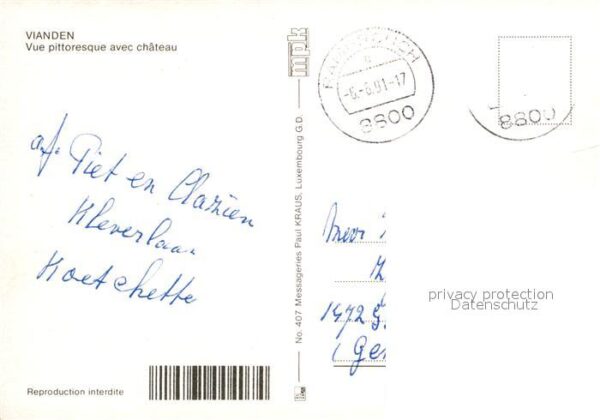 VIANDEN
Vue pittoresque avec château
af. Piet en Clazien
Kleverlaan
Koetchette
Reproduction interdite
mpk
No. 407 Messageries Paul KRAUS, Luxembourg G.D.
-6.-8.91-17
8800
8800
Mevr
1472 G.
(Gen
privacy protection
Datenschutz